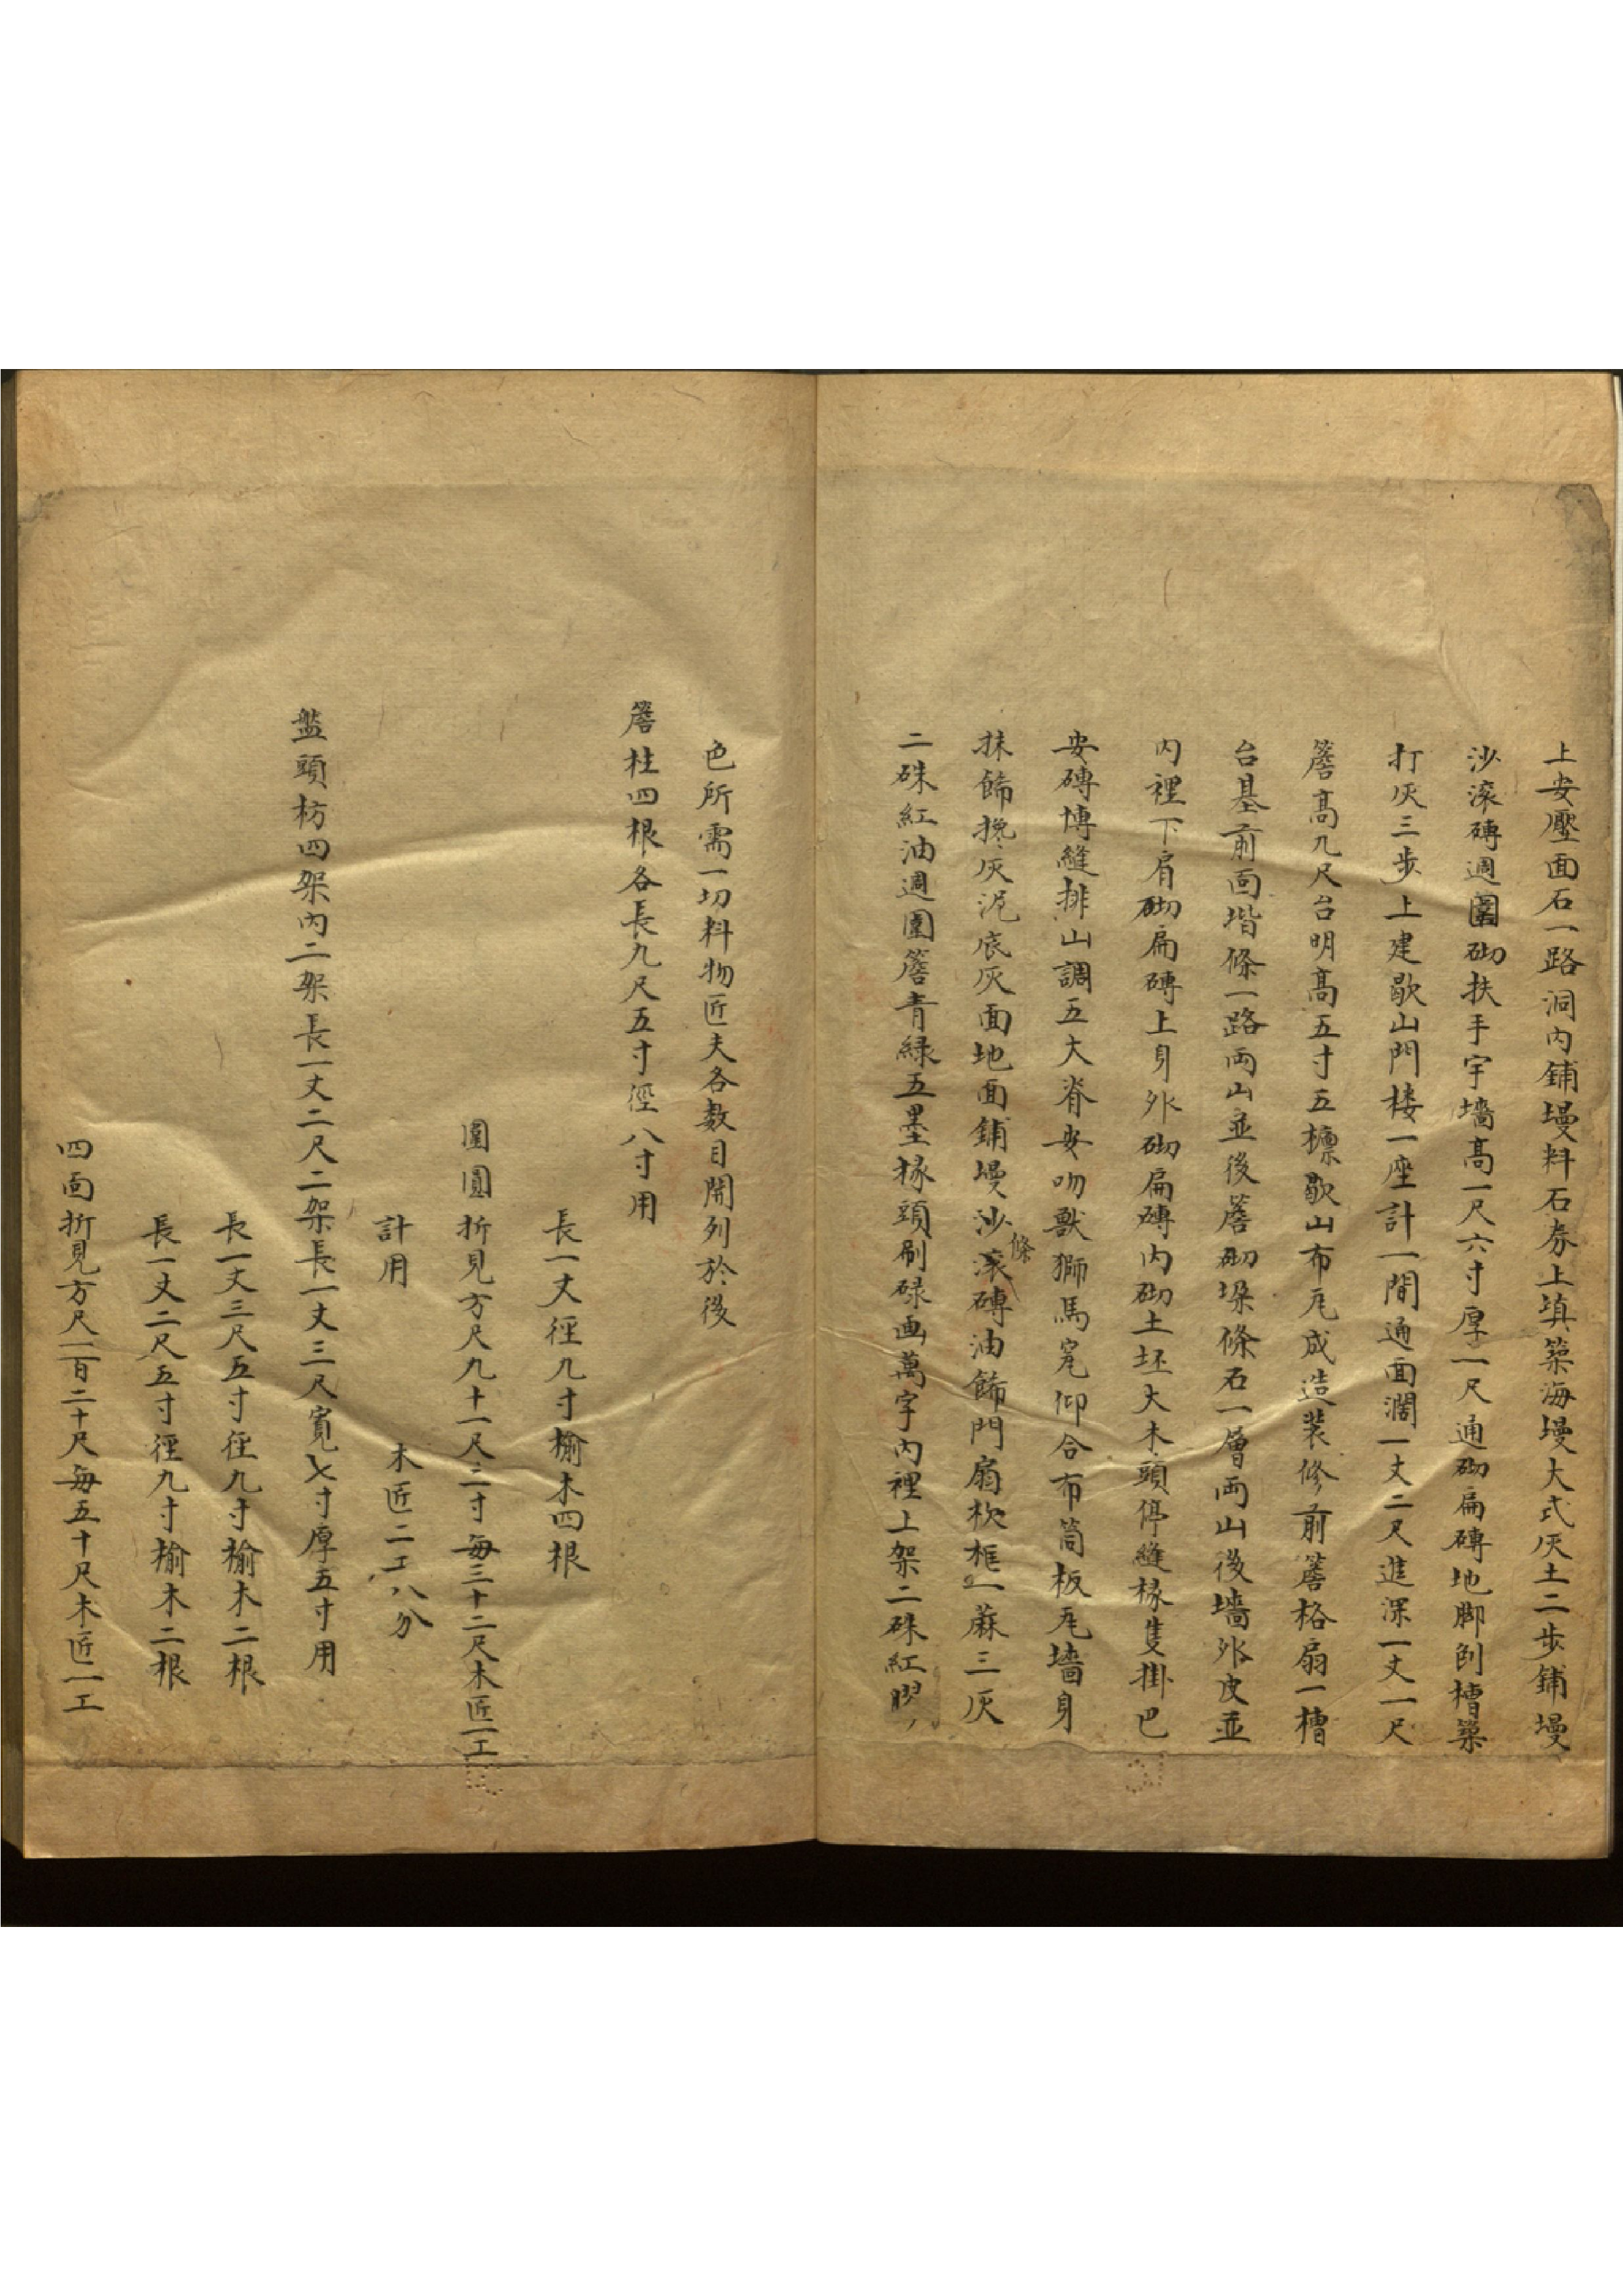 上安壓面石一路洞内鋪墁料石券上填築海墁大式灰土二步鋪墁
沙滚磚週圍砌扶手宇墻高一尺六寸厚一尺通砌扁磚地脚刨槽築
打灰三步上建歇山門楼一座計一間通面濶一丈二尺進深一丈一尺
簷高九尺台明高五寸五檩歇山布瓦成造装修前簷格扇一槽
台基前面堦條一路両山並後簷砌垛條石一層両山後墻外皮並
内裡下肩砌扁磚上身外砌扁磚内砌土坯大木頭停縫椽隻掛巴
安磚博縫排山調五大脊安吻獸獅馬窊仰合布筒板瓦墻身
抹飾搀灰泥底灰面地面鋪墁沙滚條磚油飾門扇枕框一蔴三灰
二硃紅油週圍簷青緑五墨椽頭刷碌画萬字内裡上架二硃紅膠
色所需一切料物匠夫各数目開列於後
簷柱四根各長九尺五寸徑八寸用
長一丈徑九寸榆木四根
圍圓折見方尺九十一尺二寸每三十二尺木匠一工
計用　木匠二工八分
盤頭枋四架内二架長一丈二尺二架長一丈三尺寬七寸厚五寸用
長一丈三尺五寸徑九寸榆木二根
長一丈二尺五寸徑九寸榆木二根
四面折見方尺一百二十尺每五十尺木匠一工